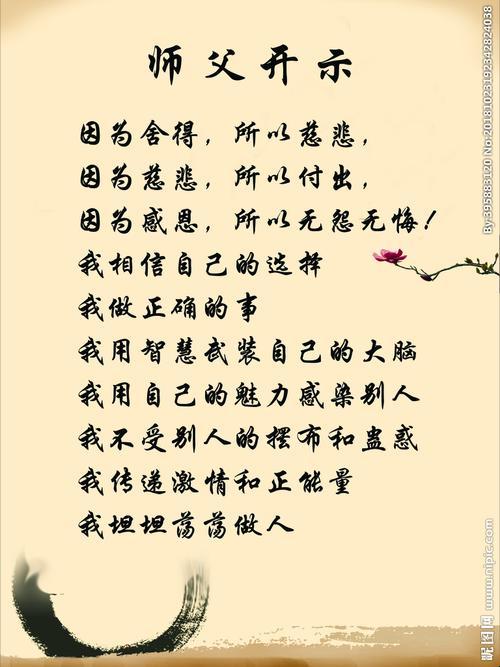 师父开示
因为舍得，所以慈悲，
因为慈悲，所以付出，
因为感恩，所以无怨无悔！
我相信自己的选择
我做正确的事
我用智慧武装自己的大脑
我用自己的魅力感染别人
我不受别人的摆布和蛊惑
我传递激情和正能量
我坦坦荡荡做人
By:395883120 No:20181023192342824038
昵图网 www.nipic.com